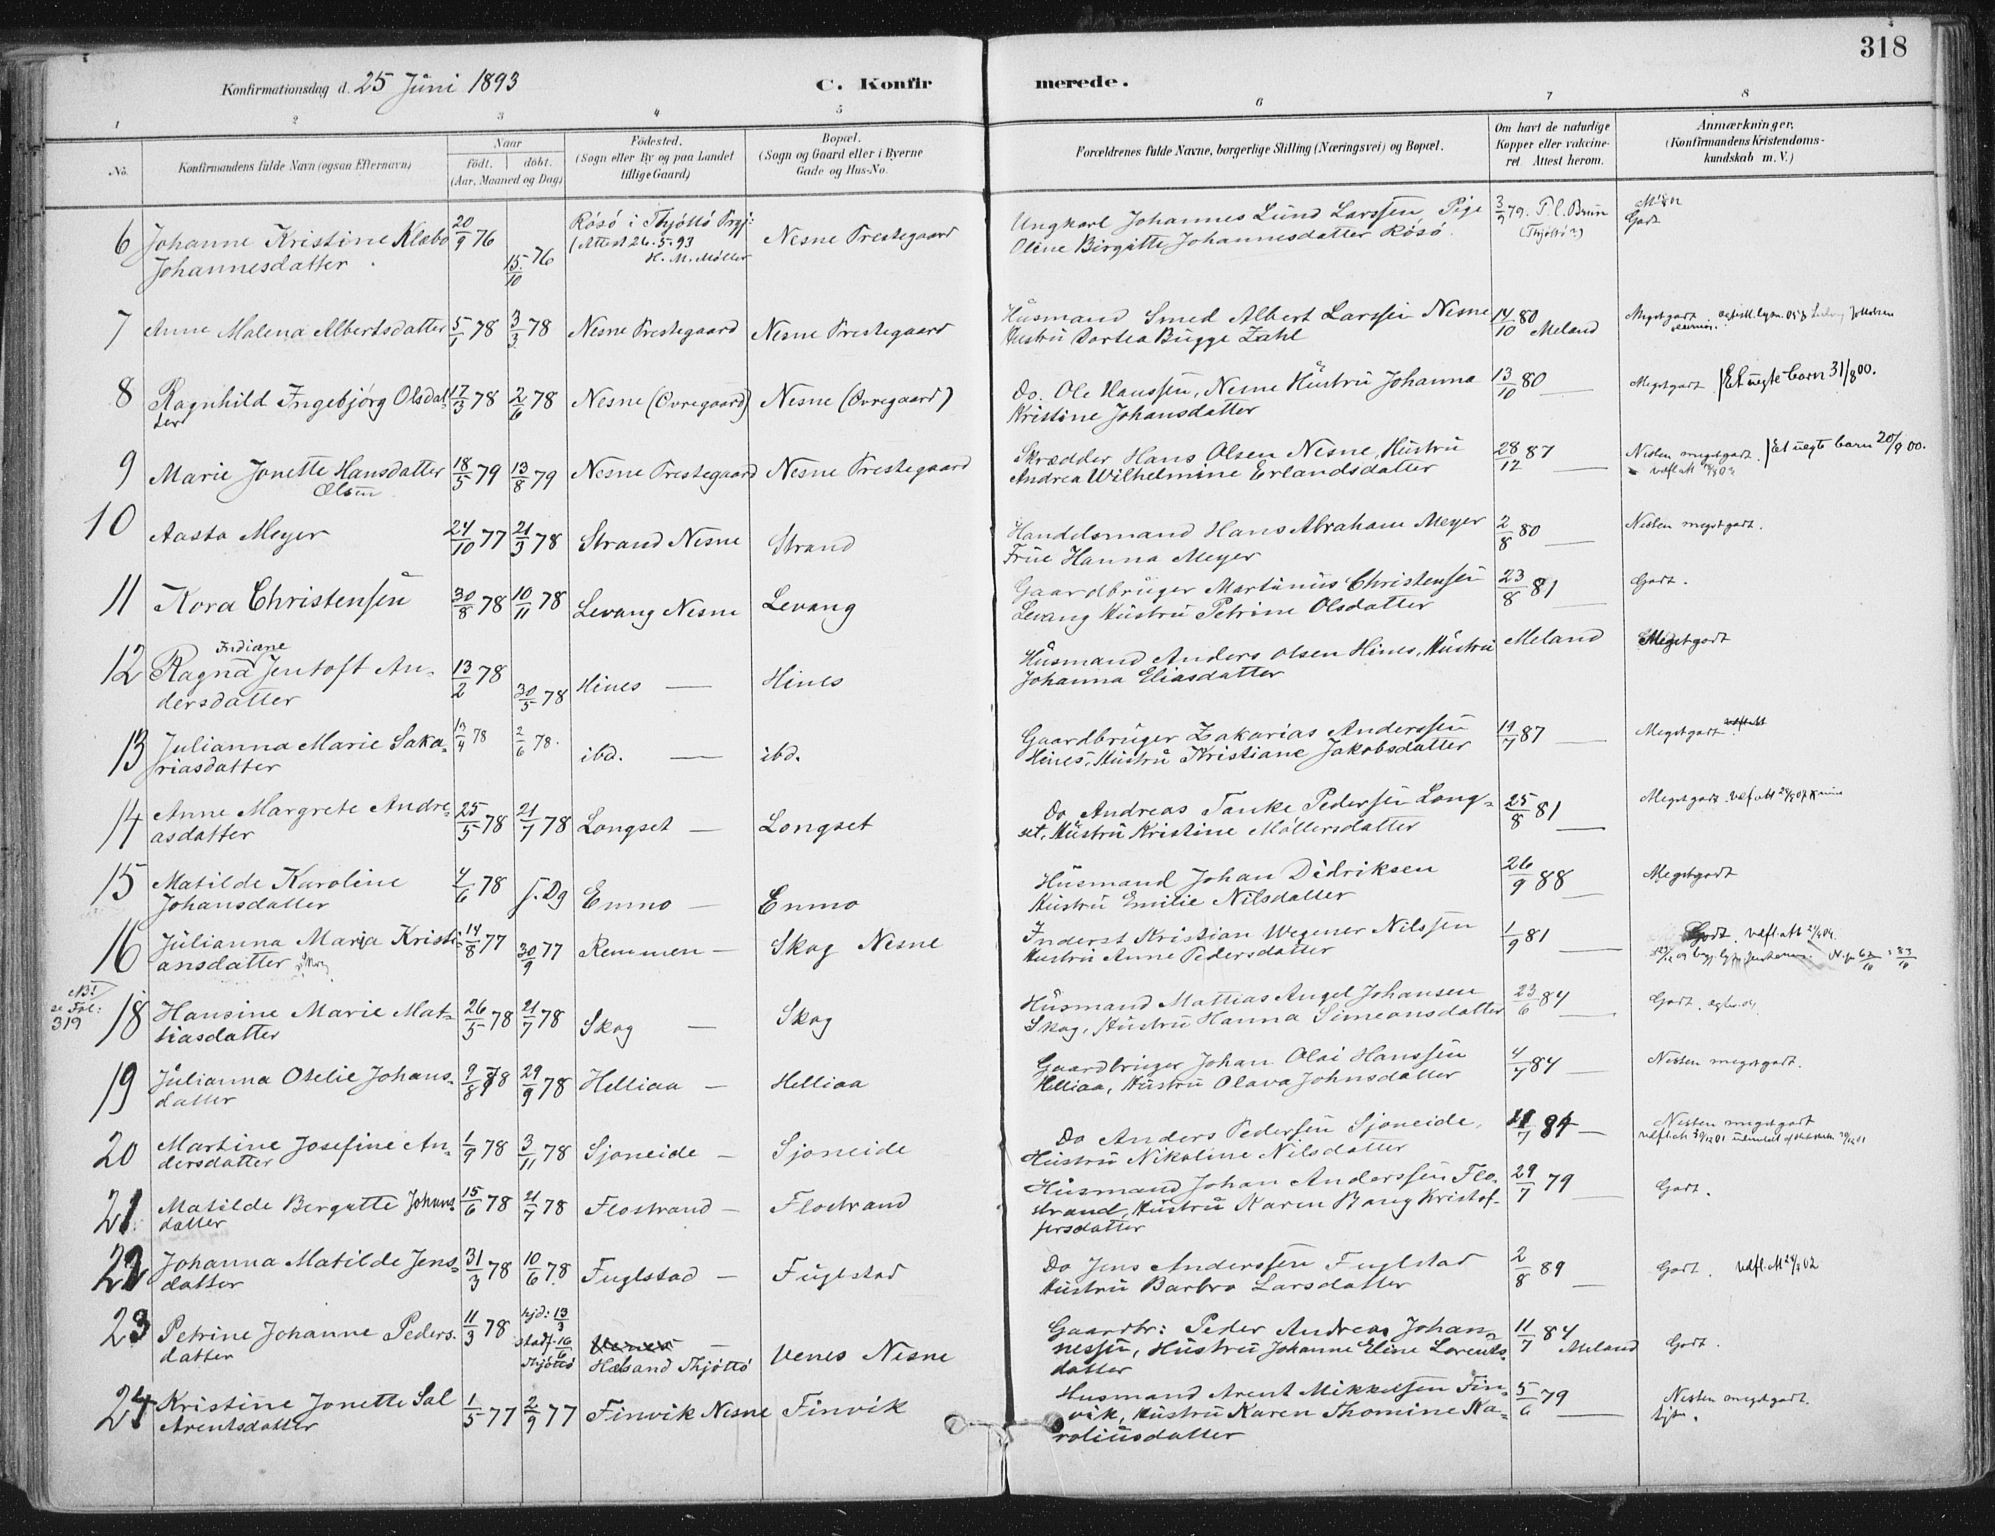 318
Konfirmationsdag d. 25 Juni 1893
C. Konfir merede.
1 2 3 4 5 6 7 8
No.
Konfirmandens fulde Navn (ogsaa Efternavn)
Naar
födt. döbt.
(Aar, Maaned og Dag)
Födested.
(Sogn eller By og paa Landet
tillige Gaard)
Bopæl.
(Sogn og Gaard eller i Byerne
Gade og Hus-No.
Forældrenes fulde Navne, borgerlige Stilling (Næringsvei) og Bopæl.
Om havt de naturlige
Kopper eller vakcine-
ret. Attest herom.
Anmærkninger.
(Konfirmandens Kristendoms-
kundskab m. V.)
6 Johanne Kristine Klæbo 20/9 76 Røsö i Thjöttö Prgj: Nesne Prestegaard Ungkarl Johannes Lund Larssen, Pige 3/9 79. P. C. Brun
Johannesdatter 15/10 76 (Attest 26.5.93 H. M. Möller Oline Birgitte Johannesdatter Rösö. (Thjöttö?) Godt
7 Anne Malena Albertsdatter 5/1 78 3/3 78 Nesne Prestegaard Nesne Prestegaard Husmand Smed Albert Larssen Nesne 14/10 80 Meland Megetgodt
Hustru Dortea Bugge Zahl
8 Ragnhild Ingebjörg Olsdat- 17/3 78 2/6 78 Nesne (Övregaard) Nesne (Övregaard) Do. Ole Hanssen, Nesne Hustru Johanna 13/10 80 — Megetgodt Et uegte barn 31/8 00.
ter Kristine Johansdatter
9 Marie Jonette Hansdatter 18/5 79 13/8 79 Nesne Prestegaard Nesne Prestegaard Skrædder Hans Olsen Nesne, Hustru 28/12 87 — Nesten megetgodt. Et uegte barn 20/9 00.
Olsen Andrea Wilhelmine Erlandsdatter
10 Aasta Meyer 24/10 77 21/3 78 Strand Nesne Strand Handelsmand Hans Abraham Meyer 2/8 80 — Nesten megetgodt.
Frue Hanna Meyer
11 Kora Christensen 30/8 78 10/11 78 Levang Nesne Levang Gaardbruger Martinus Christensen 23/8 81 — Godt.
Levang Hustru Petrine Olsdatter
Indiane
12 Ragna Jentoft An- 13/2 78 30/5 78 Hines — Hines Husmand Anders Olsen Hines, Hustru Meland Megetgodt
dersdatter Johanna Eliasdatter
13 Julianna Marie Saka- 13/4 78 2/6 78. ibd. — ibd. Gaardbruger Zakarias Anderssen 19/7 87 — Megetgodt
riasdatter Hines, Hustru Kristiane Jakobsdatter
14 Anne Margrete Andre- 25/5 78 21/7 78 Longset — Longset Do Andreas Tanke Pedersen Long- 25/8 81 — Megetgodt
asdatter set, Hustru Kristine Möllersdatter
15 Matilde Karoline 4/6 78 s. Dg Enmo — Enmo Husmand Johan Didriksen 26/9 88 — Megetgodt
Johansdatter Hustru Emilie Nilsdatter
16 Julianna Maria Kristi- 14/8 77 30/9 77 Remmen — Skog Nesne Inderst Kristian Wegener Nilssen 1/9 81 — Godt.
ansdatter Hustru Anne Pedersdatter
NB!
se Fol:
319
18 Hansine Marie Mat- 26/5 78 21/7 78 Skog — Skog Husmand Mattias Angel Johansen 23/6 84 — Godt.
tiasdatter Skog, Hustru Hanna Simeonsdatter
19 Julianna Otelie Johans- 9/8 78 29/9 78 Helliaa — Helliaa Gaardbruger Johan Olai Hanssen 4/7 84 — Nesten megetgodt.
datter Helliaa, Hustru Olava Johnsdatter
20 Martine Josefine An- 1/9 78 3/11 78 Sjoneide — Sjoneide Do Anders Pedersen Sjoneide, 11/7 84 — Nesten megetgodt
dersdatter Hustru Nikoline Nilsdatter
21 Matilde Bergitte Johans- 15/6 78 21/7 78 Flostrand — Flostrand Husmand Johan Anderssen Flo- 29/7 79 — Godt.
datter strand, Hustru Karen Bang Kristof-
fersdatter
22 Johanna Matilde Jens- 31/3 78 10/6 78. Fuglstad — Fuglstad Do Jens Anderssen Fuglstad 2/8 89 — Godt.
datter Hustru Barbro Larsdatter
23 Petrine Johanne Peders- 11/3 78 hjd: 13/3 stadf. 16/6 Thjöttö Venes — Hæsand Thjöttö Venes Nesne Gaardbr: Peder Andreas Johan- 11/7 84 Meland Godt.
datter nessen, Hustru Johanne Eline Lorents-
datter
24 Kristine Jonette Sal 1/5 77 2/9 77 Finvik Nesne Finvik Husmand Arent Mikkelsen Fin- 5/6 79 — Nesten megetgodt.
Arentsdatter vik, Hustru Karen Thomine Ka-
roliusdatter